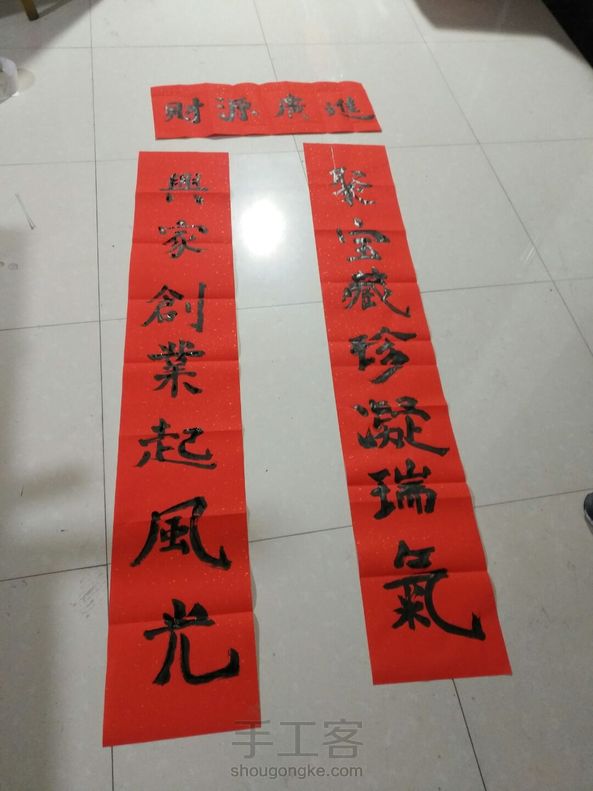 財源廣進
興家創業起風光
聚宝藏珍凝瑞氣
手工客
shougongke.com